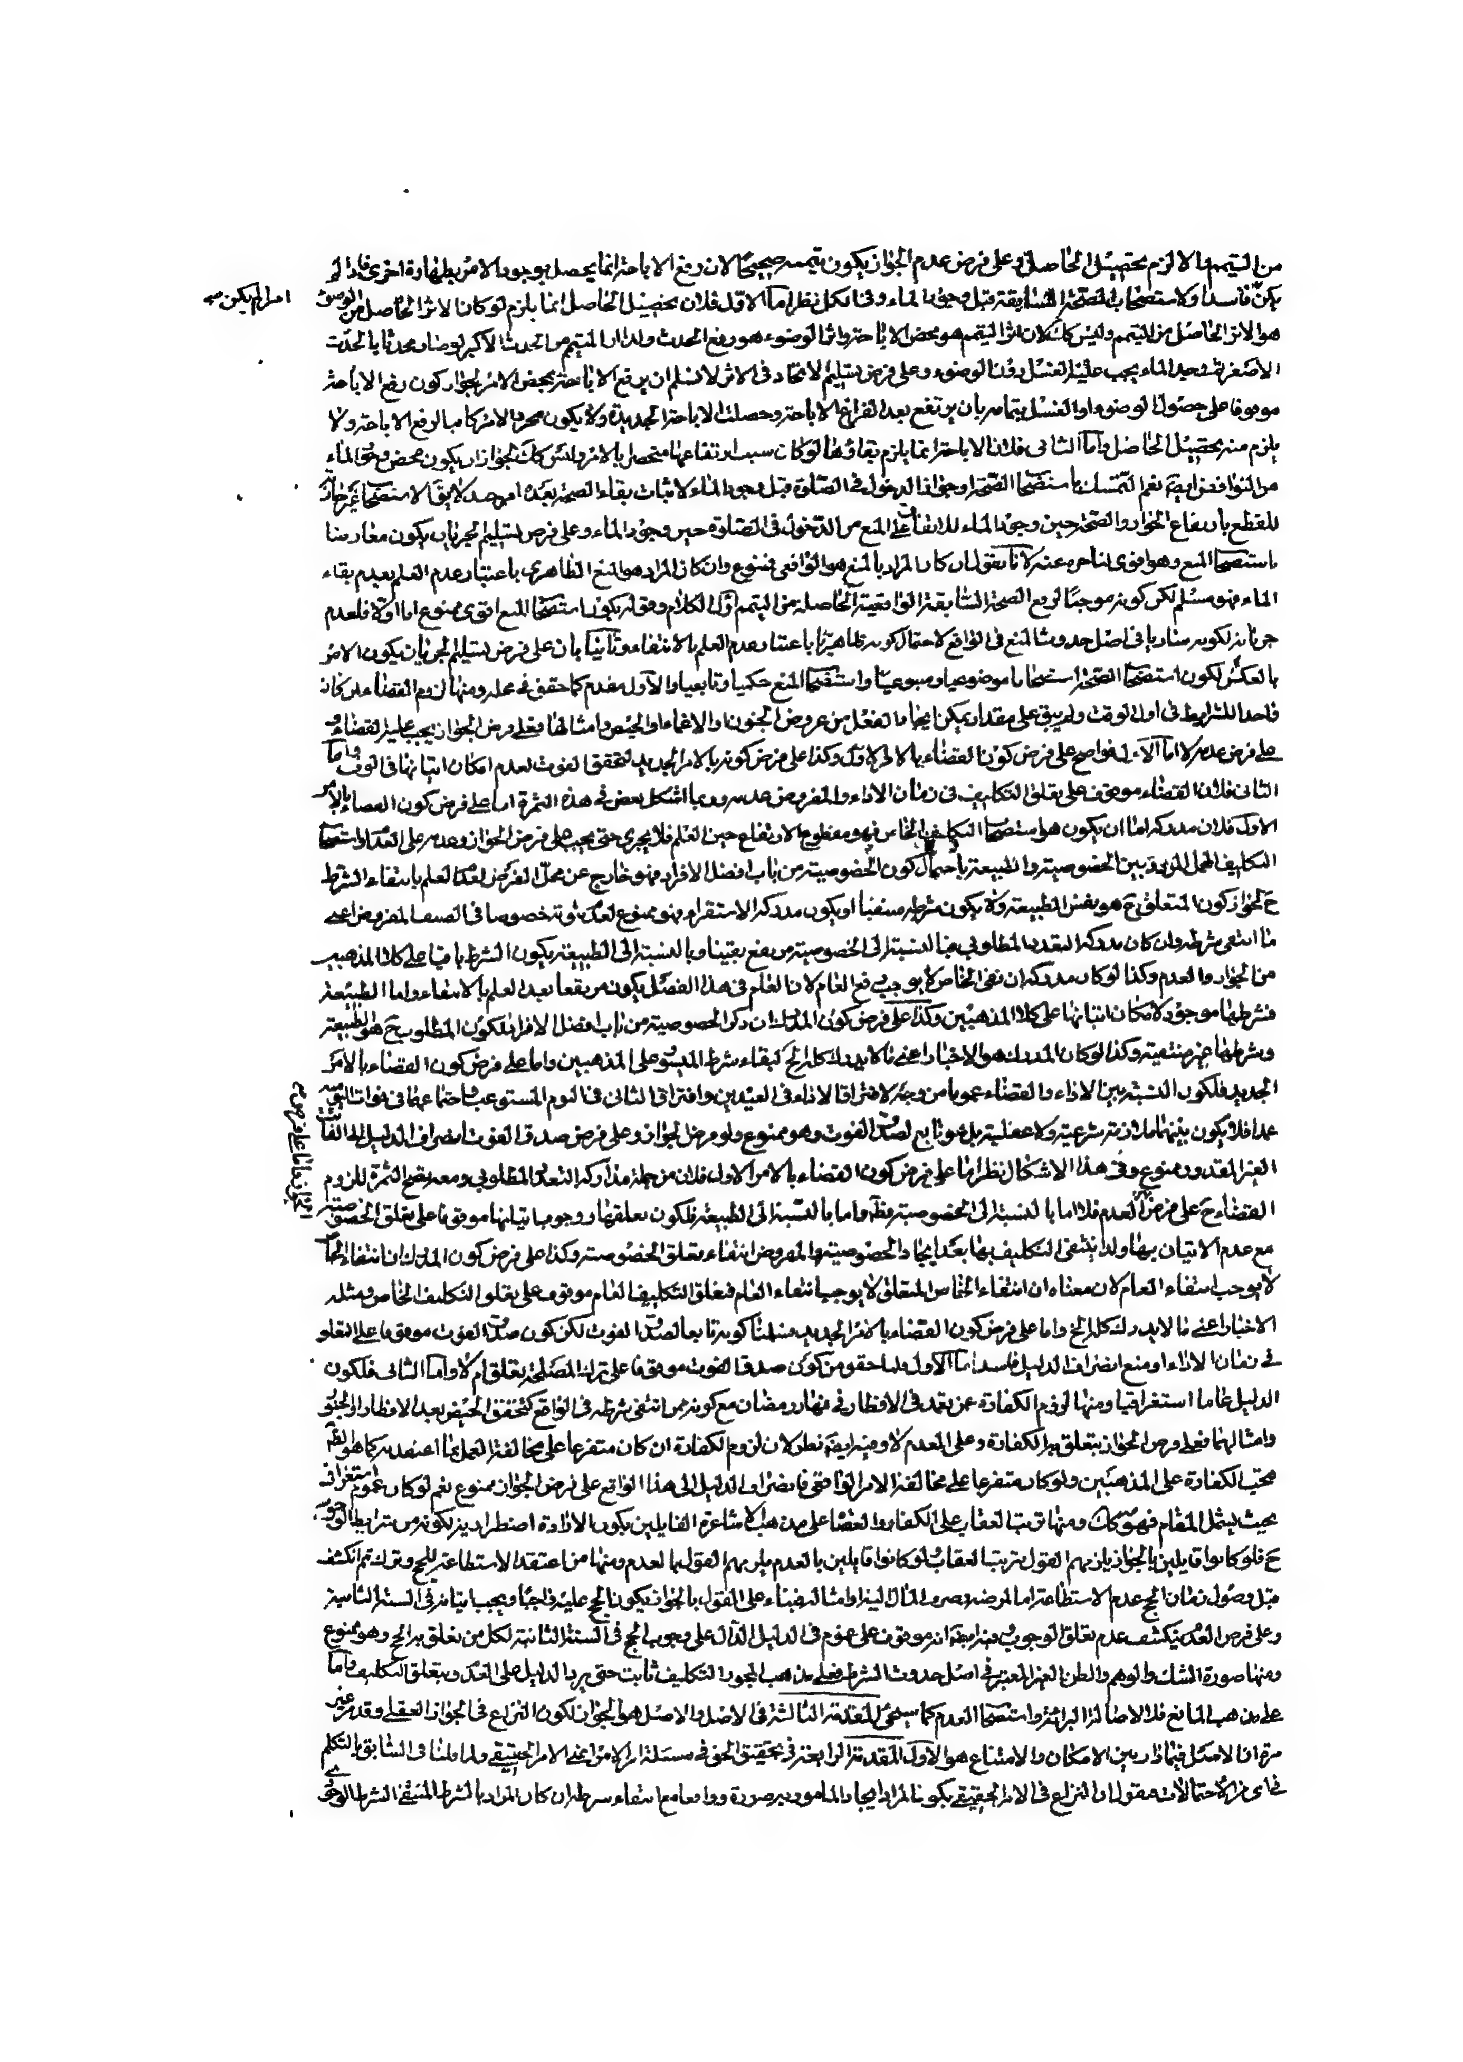 من التيمم والا لزم تحصيل الحاصل وعلى فرض عدم الجواز يكون تيممه صحيحًا لان رفع الاباحة انما يحصل بوجود الامر بطهارة اخرى فاذا لم
يكن فاسدا ولاستصحاب الصحة السابقة قبل وجود الماء وفى كل نظر اما الاول فلان تحصيل الحاصل انما يلزم لو كان الاثر الحاصل من الوضوء
امر لم يكن
هو الاثر الحاصل من التيمم وليس كك لان اثر التيمم هو محض الاباحة واثر الوضوء هو رفع الحدث ولذا ان المتيمم من الحدث الاكبر لو صار محدثا بالحدث
الاصغر ثم وجد الماء يجب عليه الغسل دون الوضوء وعلى فرض تسليم الاتحاد فى الاثر لا نسلم ان يرفع الاباحة بمحض الامر لجواز كون رفع الاباحة
موقوفا على حصول الوضوء او الغسل بتمامه بان يرتفع بعد الفراغ الاباحة وحصلت الاباحة الجديدة ولا يكون مجرد الامر كافيا لرفع الاباحة ولا
يلزم منه تحصيل الحاصل واما الثانى فلان الاباحة انما يلزم بقاؤها لو كان سبب ارتفاعها منحصرا بالامر وليس كك لجواز ان يكون محض وجود الماء
من النواقض ايضا نعم التمسك باستصحاب الصحة او جواز الدخول فى الصلوة قبل وجود الماء لاثبات بقاء الصحة بعده امر جيد لا يق الاستصحاب غير جار
للقطع بارتفاع الجواز والصحة حين وجود الماء للاتفاق على المنع من الدخول فى الصلوة حين وجود الماء وعلى فرض تسليم الجريان يكون معارضا
باستصحاب المنع وهو اقوى لتاخره عنه لانا نقول ان كان المراد بالمنع هو الواقعى فممنوع وان كان المراد هو المنع الظاهرى باعتبار عدم العلم بعدم بقاء
الماء فهو مسلم لكن كونه موجبًا لرفع الصحة السابقة الواقعية الحاصلة من التيمم اول الكلام وقوله يكون استصحاب المنع اقوى ممنوع اما اولا فلعدم
جريانه لكونه ساريا فى اصل حدوث المنع فى الواقع لاحتمال كونه ظاهريا باعتبار عدم العلم بالانتفاء وثانيًا بان على فرض تسليم الجريان يكون الامر
بالعكس لكون استصحاب الصحة استصحابا موضوعيا ومتبوعيا واستصحاب المنع حكميا وتابعيا والاول مقدم كما حقق فى محله ومنها لزوم القضاء لمن كان
واجدا للشرايط فى اول الوقت ولم يبق على مقدار يمكن ايجاد الفعل من عروض الجنون والاغماء والحيض وامثالها فعلى فرض الجواز يجب عليه القضاء و
على فرض عدمه لا اما الاول فواضح على فرض كون القضاء بالامر الاول وكذا على فرض كونه بالامر الجديد لتحقق الفوت لعدم امكان اتيانها فى الوقت واما
الثانى فلان القضاء موقوف على تعلق التكليف فى زمان الاداء والمفروض عدمه وربما اشكل بعض فى هذه الثمرة اما على فرض كون القضاء بالامر
الاول فلان مدركه اما ان يكون هو استصحاب التكليف الخاص فهو مقطوع الارتفاع حين العلم فلا يجرى حتى يجب على فرض الجواز وعدمه على العدم او استصحاب
التكليف المجمل المردد بين الخصوصية والطبيعة باحتمال كون الخصوصية من باب افضل الافراد فهو خارج عن محل الفرض لعدم العلم بانتفاء الشرط
ح لجواز كون المتعلق ح هو نفس الطبيعة ولا يكون شرطه منتفيا او يكون مدركه الاستقراء فهو ممنوع لعدم ثبوته خصوصا فى الصنف المفروض اعنى
ما انتفى شرطه وان كان مدركه التعدد المطلوبى فبالنسبة الى الخصوصية مرتفع يقينا وبالنسبة الى الطبيعة يكون الشرط باقيا على كلا المذهبين
من الجواز والعدم وكذا لو كان مدركه ان نفى الخاص لا يوجب رفع العام لان العام فى هذا الفصل يكون مرتفعا بعد العلم بالانتفاء واما الطبيعة
فشرطها موجود لامكان اتيانها على كلا المذهبين وكذا على فرض كون المدرك ان ذكر الخصوصية من باب افضل الافراد لكون المطلوب ح هو الطبيعة
وشرطها غير منتفية وكذا لو كان المدرك هو الاخبار اعنى ما لا يدرك كله الخ لبقاء شرط الميسور على المذهبين واما على فرض كون القضاء بالامر
الجديد فلكون النسبة بين الاداء والقضاء عموما من وجه لافتراق الاداء فى العيدين وافتراق الثانى فى النوم المستوعب واجتماعهما فى فوات اليومية
عمدا فلا يكون بينهما ملازمة شرعية ولا عقلية بل هو تابع لصدق الفوت وهو ممنوع ولو فرض الجواز وعلى فرض صدق الفوت انصراف الدليل الى الفائت
الغير المقدور ممنوع وفى هذا الاشكال نظر اما على فرض كون القضاء بالامر الاول فلان من جملة مداركه التعدد المطلوبى ومعه يتضح الثمرة للزوم
القضاء ح على فرض العدم فلا اما بالنسبة الى الخصوصية فظ واما بالنسبة الى الطبيعة فلكون تعلقها ووجوب اتيانها موقوفا على تعلق الخصوصية
مع عدم الاتيان بها ولذا ينتفى التكليف بها بعد ايجاد الخصوصية والمفروض انتفاء تعلق الخصوصية وكذا على فرض كون المدرك ان انتفاء الخاص
لا يوجب انتفاء العام لان معناه ان انتفاء الخاص المتعلق لا يوجب انتفاء العام فتعلق التكليف العام موقوف على تعلق التكليف الخاص ومثله
الاخبار اعنى ما لا يدرك كله الخ واما على فرض كون القضاء بالامر الجديد فسلمنا كونه تابعا لصدق الفوت لكن كون صدق الفوت موقوفا على التعلق
فى زمان الاداء او منع انصراف الدليل فاسد اما الاول فلما حقق من كون صدق الفوت موقوفا على ترك المصلحة تعلق ام لا واما الثانى فلكون
الدليل عاما استغراقيا ومنها لزوم الكفارة عن تعمد فى الافطار فى نهار رمضان مع كونه ممن انتفى شرطه فى الواقع كتحقق الحيض بعد الافطار او الجنون
وامثالهما فعلى فرض الجواز يتعلق به الكفارة وعلى العدم لا وفيه ايضا نظر لان لزوم الكفارة ان كان متفرعا على مخالفة العمل بما اعتقد به كما هو الظ
فيجب الكفارة على المذهبين ولو كان متفرعا على مخالفة الامر الواقعى فانصراف الدليل الى هذا الواقع على فرض الجواز ممنوع نعم لو كان عموم استغراقى
بحيث يشمل المقام فهو كك ومنها ترتب العقاب على الكفار والعصاة على مذهب الاشاعرة القايلين بكون الارادة اضطرارية لكونه من شرايط الوجود
ح فلو كانوا قايلين بالجواز يلزمهم القول بترتب العقاب لو كانوا قايلين بالعدم يلزمهم القول بالعدم ومنها من اعتقد الاستطاعة للحج وترك ثم انكشف
قبل وصول زمان الحج عدم الاستطاعة اما لمرضه او صرف المال اليه او امثاله فبناء على القول بالجواز يكون الحج عليه واجبًا ويجب اتيانه فى السنة الثانية
وعلى فرض العدم ينكشف عدم تعلق الوجوب وفيه ايضا انه موقوف على عموم فى الدليل الدال على وجوب الحج فى السنة الثانية لكل من تعلق به الحج وهو ممنوع
ومنها صورة الشك والوهم والظن الغير المعتبر فى اصل حدوث الشرط فعلى مذهب المجوز التكليف ثابت حتى يرد الدليل على العدم وبتعلق التكليف واما
على مذهب المانع فلا لاصالة البرائة واستصحاب العدم كما سيجئ المقدمة الثالثة فى الاصل والاصل هو الجواز لكون النزاع فى الجواز العقلى وقد مر غير
مرة ان الاصل فيما دار بين الامكان والامتناع هو الاول المقدمة الرابعة فى تحقيق الحق فى مسئلة الامر اعنى الامر الحقيقى ولما قلنا فى السابق بالتكلم
فى اى من الاحتمالات فنقول ان النزاع فى الامر الحقيقى بكون المراد ايجاد المامور به صورة وواقعا مع انتفاء شرطه ان كان المراد بالشرط المنتفى الشرط الوجودى